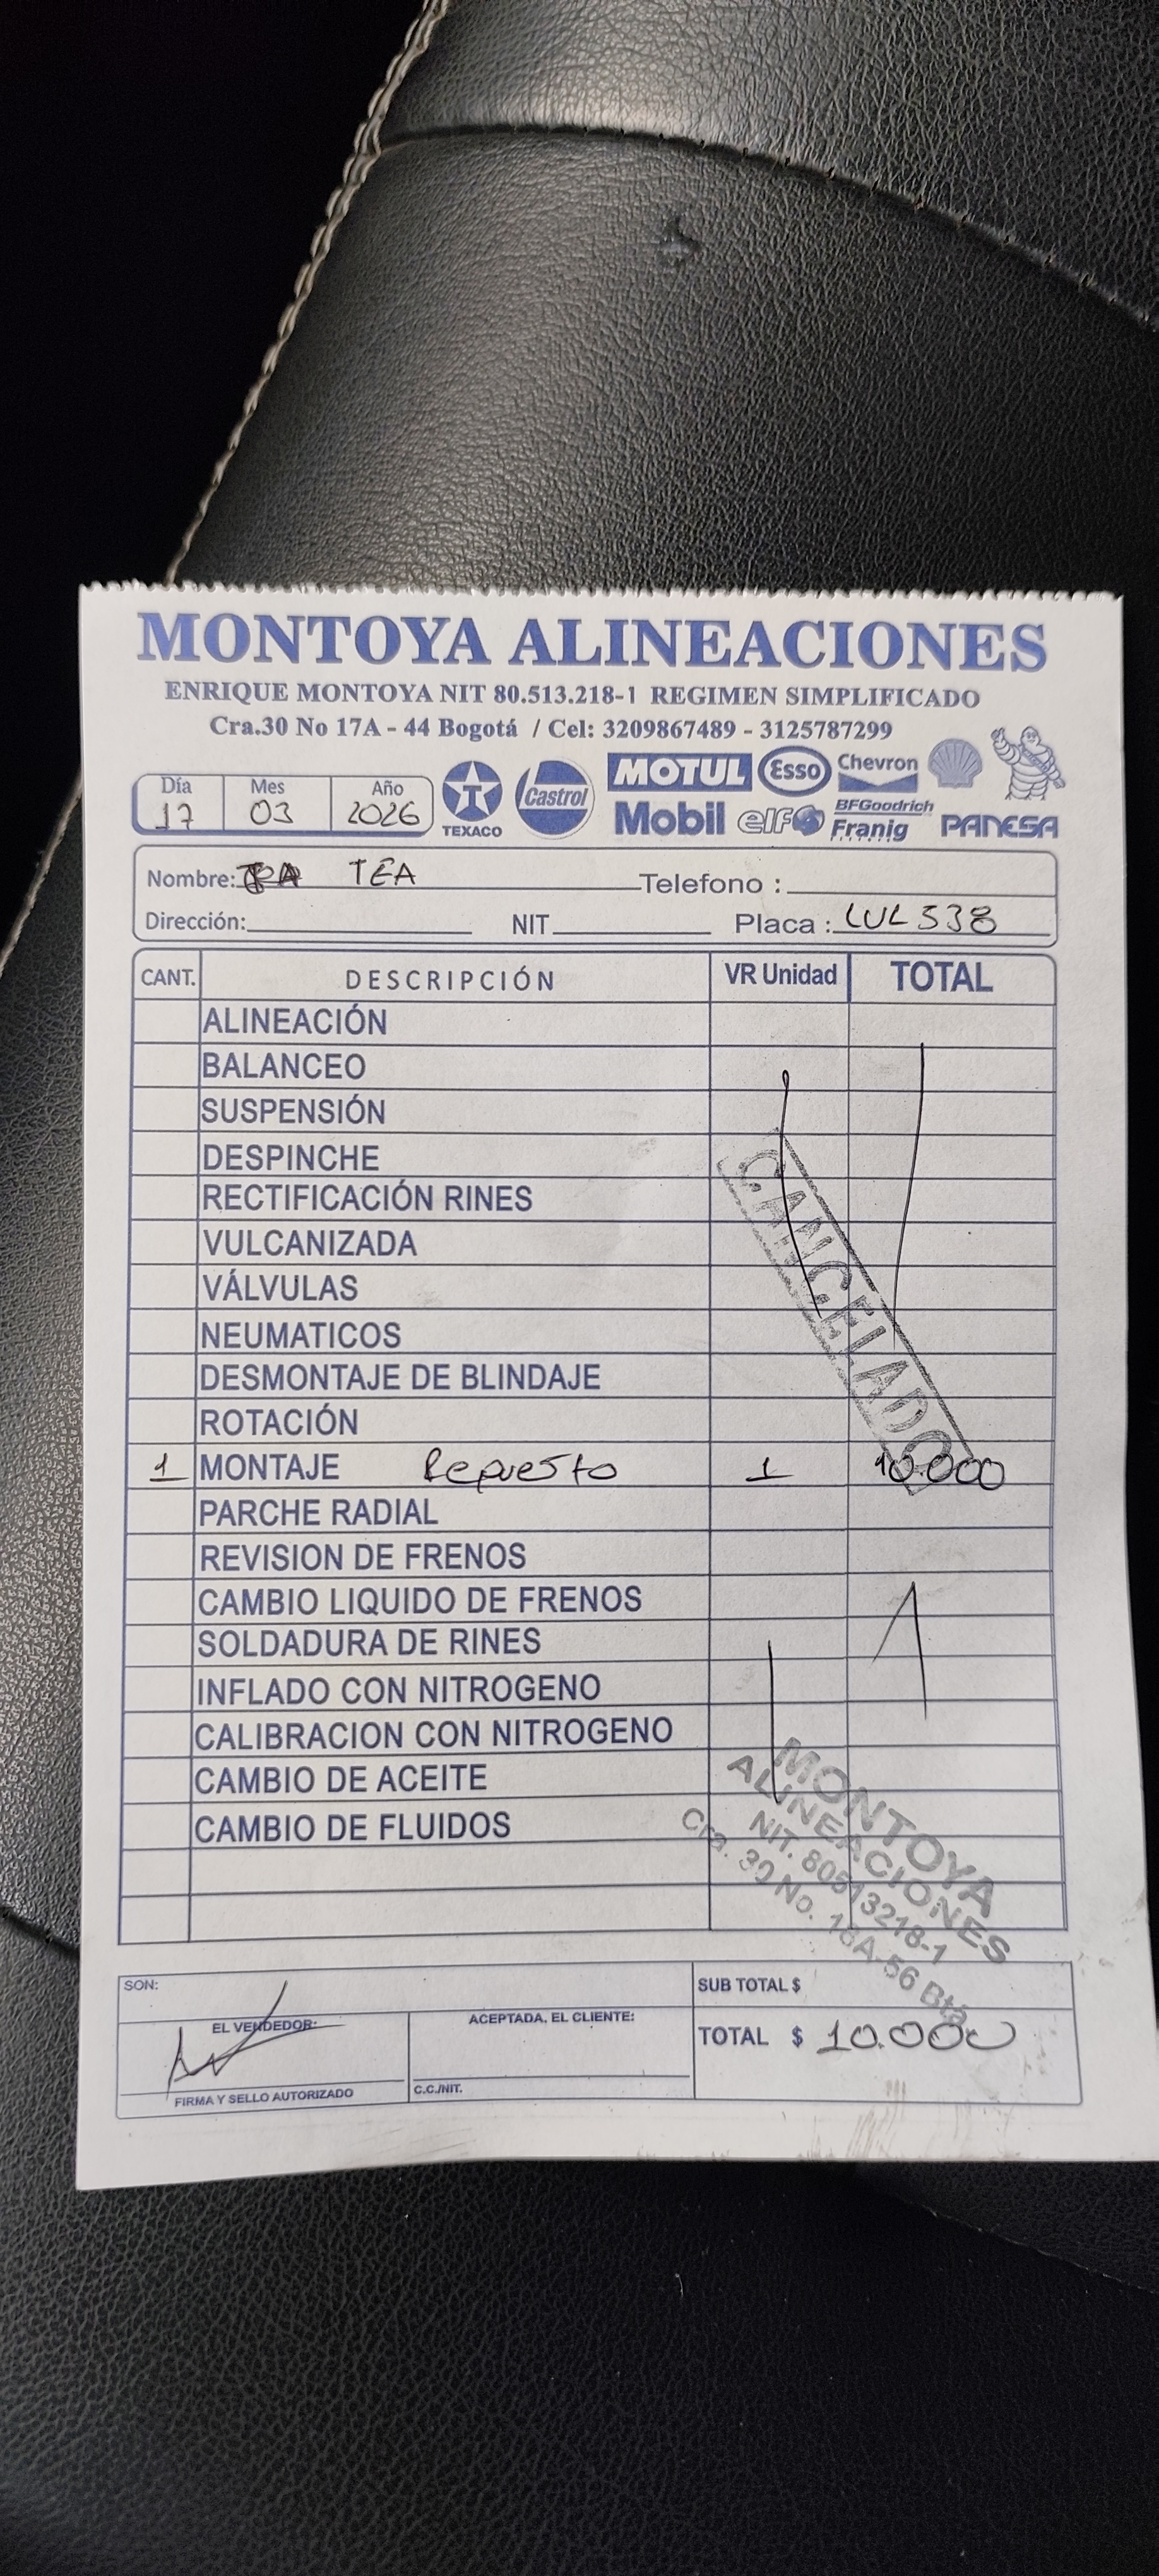 MONTOYA ALINEACIONES
ENRIQUE MONTOYA NIT 80.513.218-1 REGIMEN SIMPLIFICADO
Cra.30 No 17A - 44 Bogotá / Cel: 3209867489 - 3125787299
Día Mes Año
17 03 2026
TEXACO
Castrol
MOTUL Esso Chevron
Mobil elf BFGoodrich
Franig PANESA
Nombre: TEA Telefono :
Dirección: NIT Placa : LUL538
CANT. DESCRIPCIÓN VR Unidad TOTAL
ALINEACIÓN
BALANCEO
SUSPENSIÓN
DESPINCHE
RECTIFICACIÓN RINES
VULCANIZADA
VÁLVULAS
NEUMATICOS
DESMONTAJE DE BLINDAJE
ROTACIÓN
CANCELADO
1 MONTAJE Repuesto 1 10.000
PARCHE RADIAL
REVISION DE FRENOS
CAMBIO LIQUIDO DE FRENOS
SOLDADURA DE RINES
INFLADO CON NITROGENO
CALIBRACION CON NITROGENO
CAMBIO DE ACEITE
CAMBIO DE FLUIDOS
MONTOYA
ALINEACIONES
NIT. 80513218-1
Cra. 30 No. 16A-56 Bta
SON: SUB TOTAL $
EL VENDEDOR: ACEPTADA, EL CLIENTE:
TOTAL $ 10.000
FIRMA Y SELLO AUTORIZADO C.C./NIT.